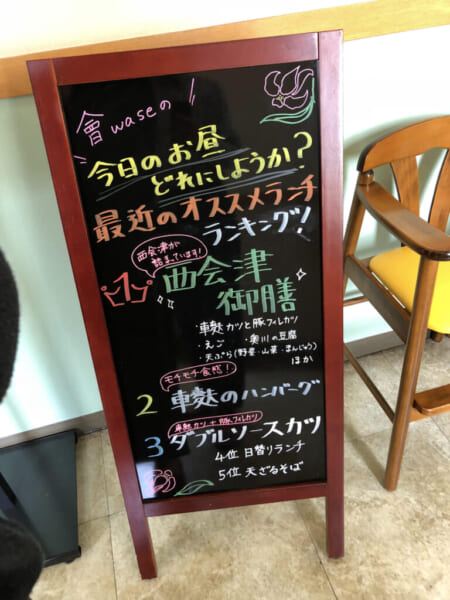 會waseの
今日のお昼
どれにしようか?
最近のオススメランチ
ランキング!
西会津が
詰まっています!
1
西会津
御膳
・車麩カツと豚フィレカツ
・えご ・奥川の豆腐
・天ぷら(野菜・山菜・まんじゅう)
ほか
モチモチ食感!
2 車麩のハンバーグ
車麩カツ+豚フィレカツ
3 ダブルソースカツ
4位 日替りランチ
5位 天ざるそば